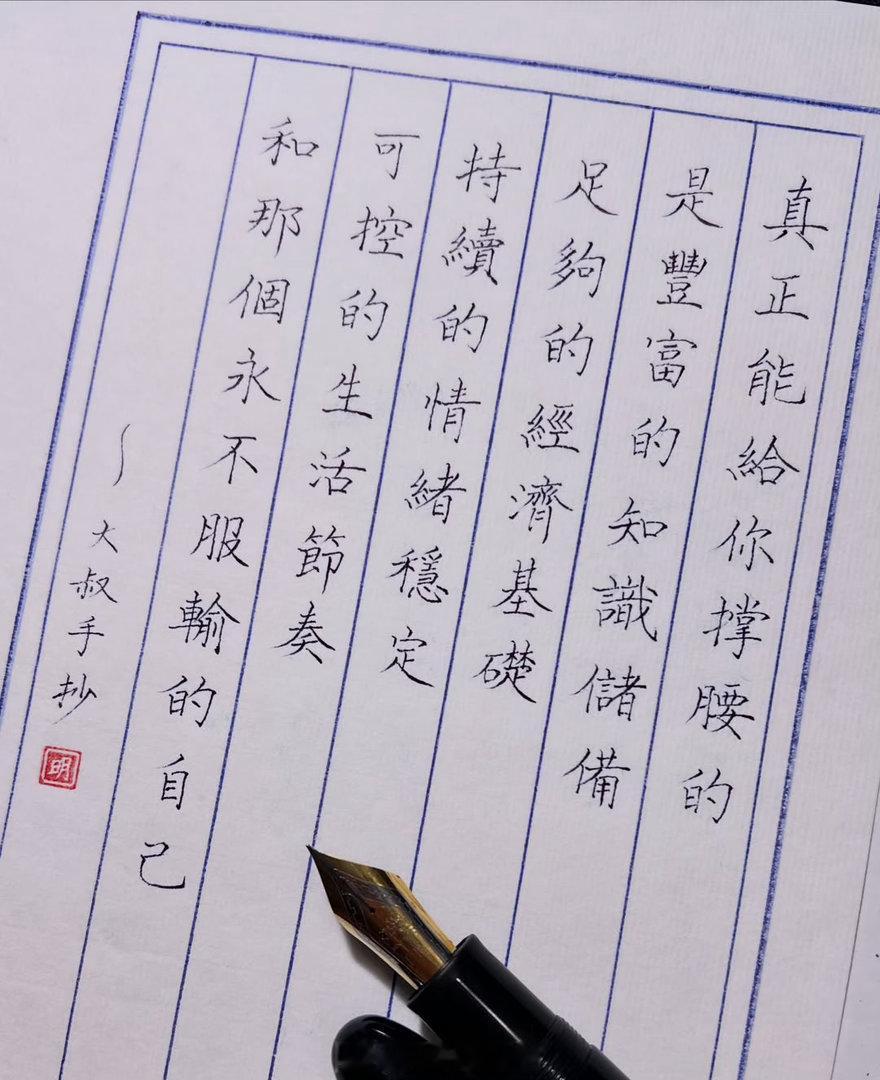 真正能給你撑腰的
是豐富的知識儲備
足夠的經濟基礎
持續的情緒穩定
可控的生活節奏
和那個永不服輸的自己
~大叔手抄
明